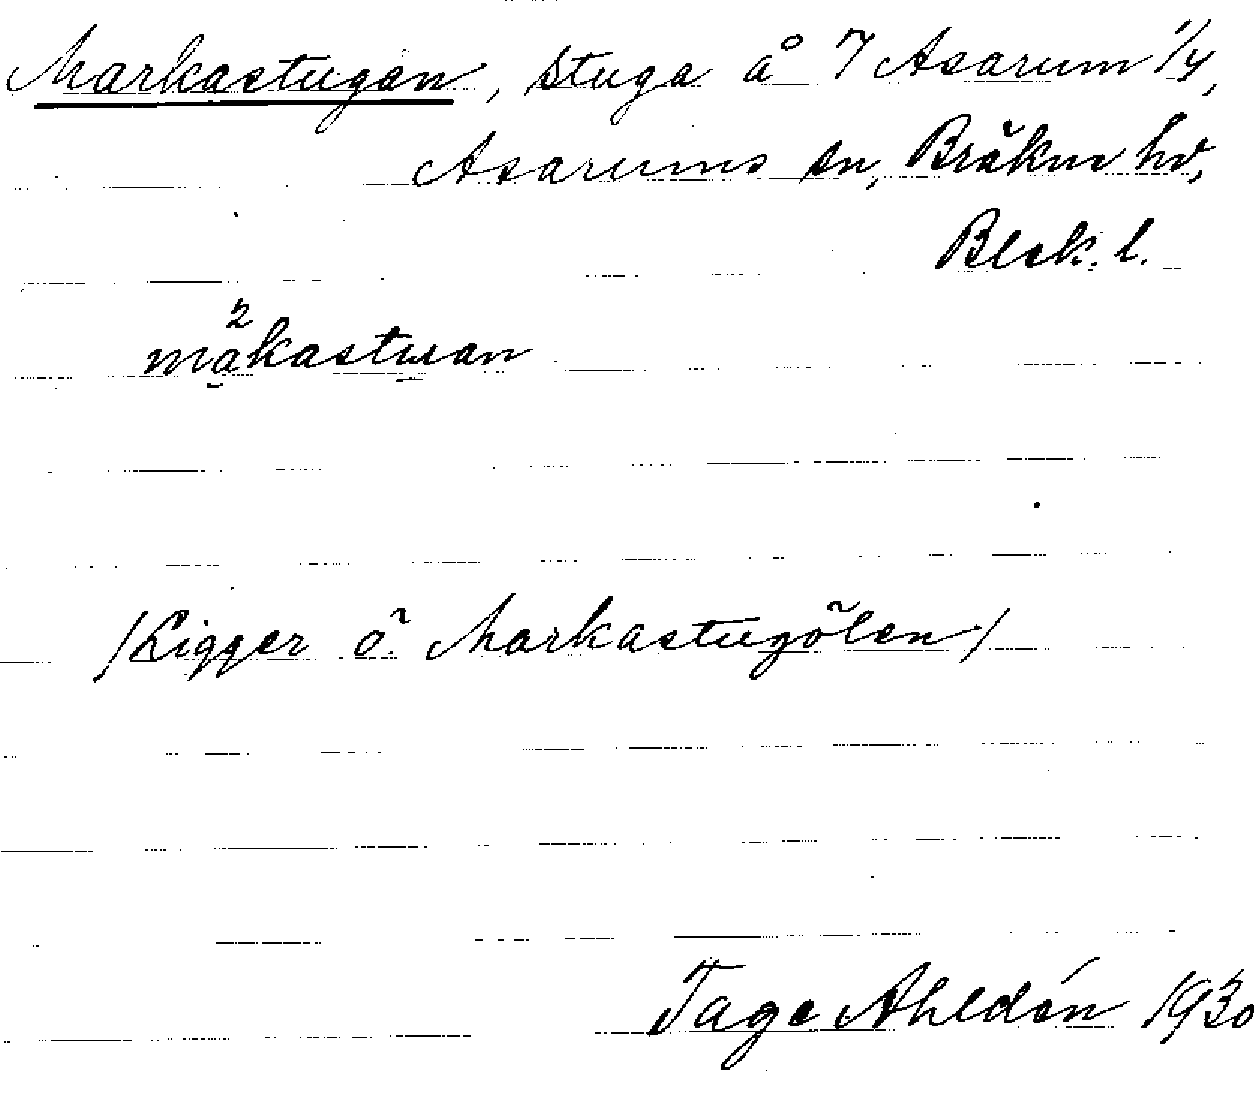 Markastugan, stuga å 7 Asarum 1/4,
Asarums sn, Bräkne hd,
Blek. l.
2
makastuan
/Ligger ö. Markastugölen/
Tage Ahldén 1930